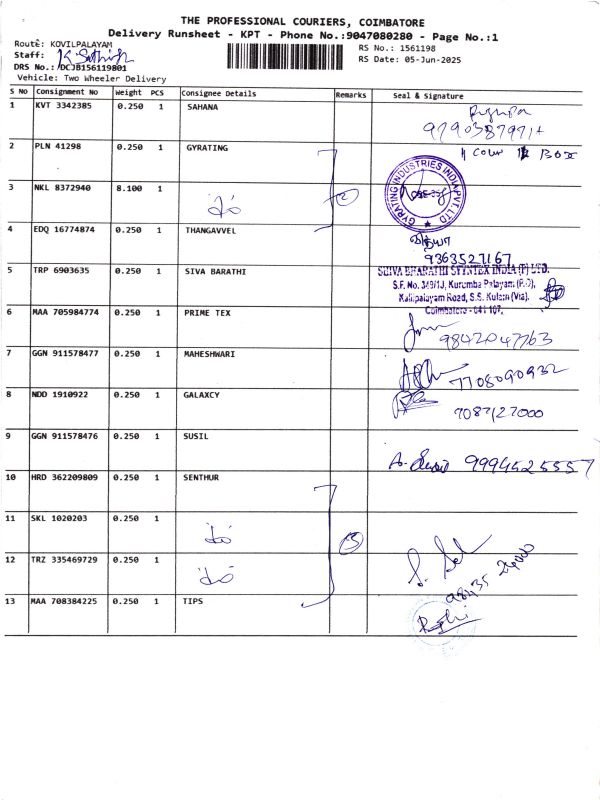 THE PROFESSIONAL COURIERS, COIMBATORE
Delivery Runsheet - KPT - Phone No.:9047080280 - Page No.:1
Route: KOVILPALAYAM
RS No.: 1561198
Staff:
RS Date: 05-Jun-2025
DRS No.: DCJB156119801
Vehicle: Two Wheeler Delivery
S No Consignment No Weight PCS Consignee Details Remarks Seal & Signature
1 KVT 3342385 0.250 1 SAHANA
2 PLN 41298 0.250 1 GYRATING 1 Cour 1 Box
GYRATING INDUSTRIES INDIA PVT. LTD
3 NKL 8372940 8.100 1 2
4 EDQ 16774874 0.250 1 THANGAVVEL
9363527167
5 TRP 6903635 0.250 1 SIVA BARATHI
SHIVA BHARATHI SYNTEX INDIA (P) LTD.
S.F. No. 349/1J, Kurumba Palayam (P.O),
Kalipalayam Road, S.S. Kulam (Via).
Coimbatore - 641 107.
6 MAA 705984774 0.250 1 PRIME TEX
9842047763
7 GGN 911578477 0.250 1 MAHESHWARI
7708090932
8 NDD 1910922 0.250 1 GALAXCY
9087127000
9 GGN 911578476 0.250 1 SUSIL
9994525557
10 HRD 362209809 0.250 1 SENTHUR
11 SKL 1020203 0.250 1 3
12 TRZ 335469729 0.250 1
13 MAA 708384225 0.250 1 TIPS